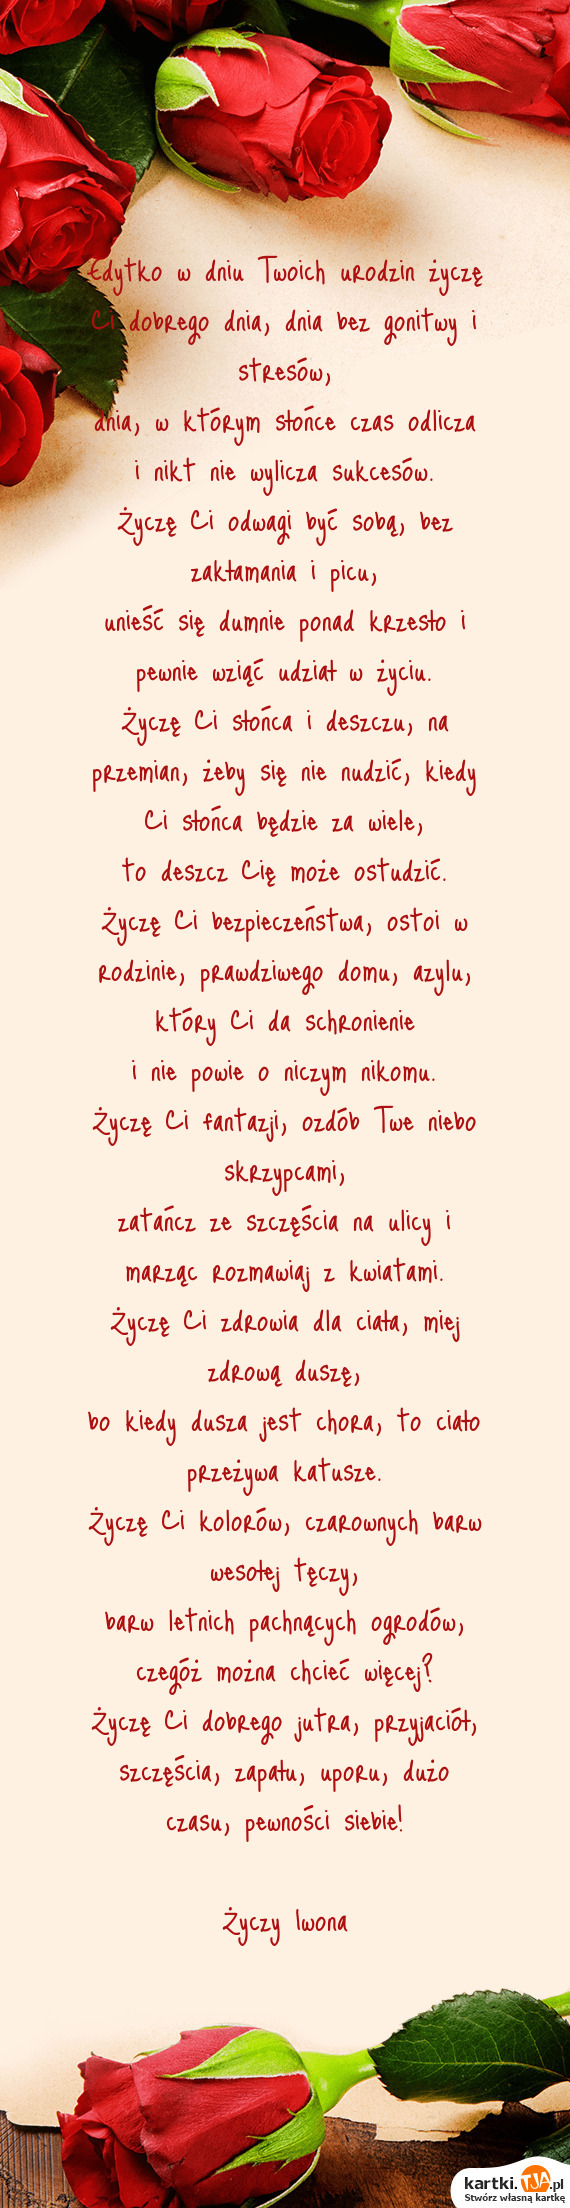 Edytko w dniu Twoich urodzin życzę
Ci dobrego dnia, dnia bez gonitwy i
stresów,
dnia, w którym słońce czas odlicza
i nikt nie wylicza sukcesów.
Życzę Ci odwagi być sobą, bez
zakłamania i picu,
unieść się dumnie ponad krzesło i
pewnie wziąć udział w życiu.
Życzę Ci słońca i deszczu, na
przemian, żeby się nie nudzić, kiedy
Ci słońca będzie za wiele,
to deszcz Cię może ostudzić.
Życzę Ci bezpieczeństwa, ostoi w
rodzinie, prawdziwego domu, azylu,
który Ci da schronienie
i nie powie o niczym nikomu.
Życzę Ci fantazji, ozdób Twe niebo
skrzypcami,
zatańcz ze szczęścia na ulicy i
marząc rozmawiaj z kwiatami.
Życzę Ci zdrowia dla ciała, miej
zdrową duszę,
bo kiedy dusza jest chora, to ciało
przeżywa katusze.
Życzę Ci kolorów, czarownych barw
wesołej tęczy,
barw letnich pachnących ogrodów,
czegóż można chcieć więcej?
Życzę Ci dobrego jutra, przyjaciół,
szczęścia, zapału, uporu, dużo
czasu, pewności siebie!
Życzy Iwona
kartki.TJA.pl
Stwórz własną kartkę